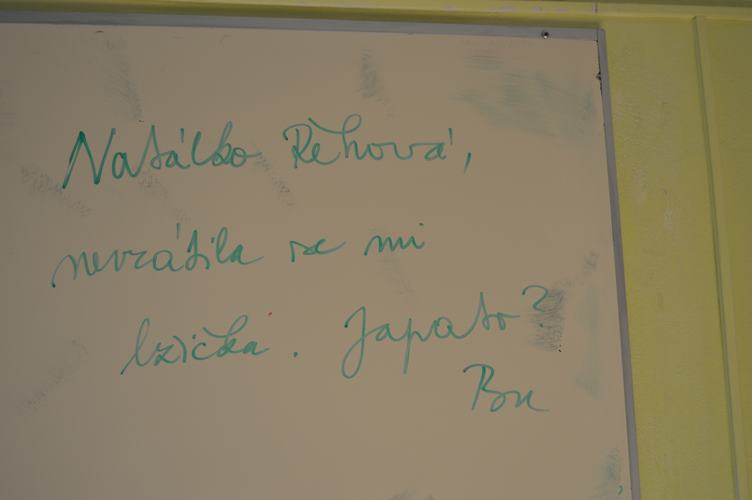 Natálko Řehová,
nevrátila se mi
lžička. Japato?
Bu